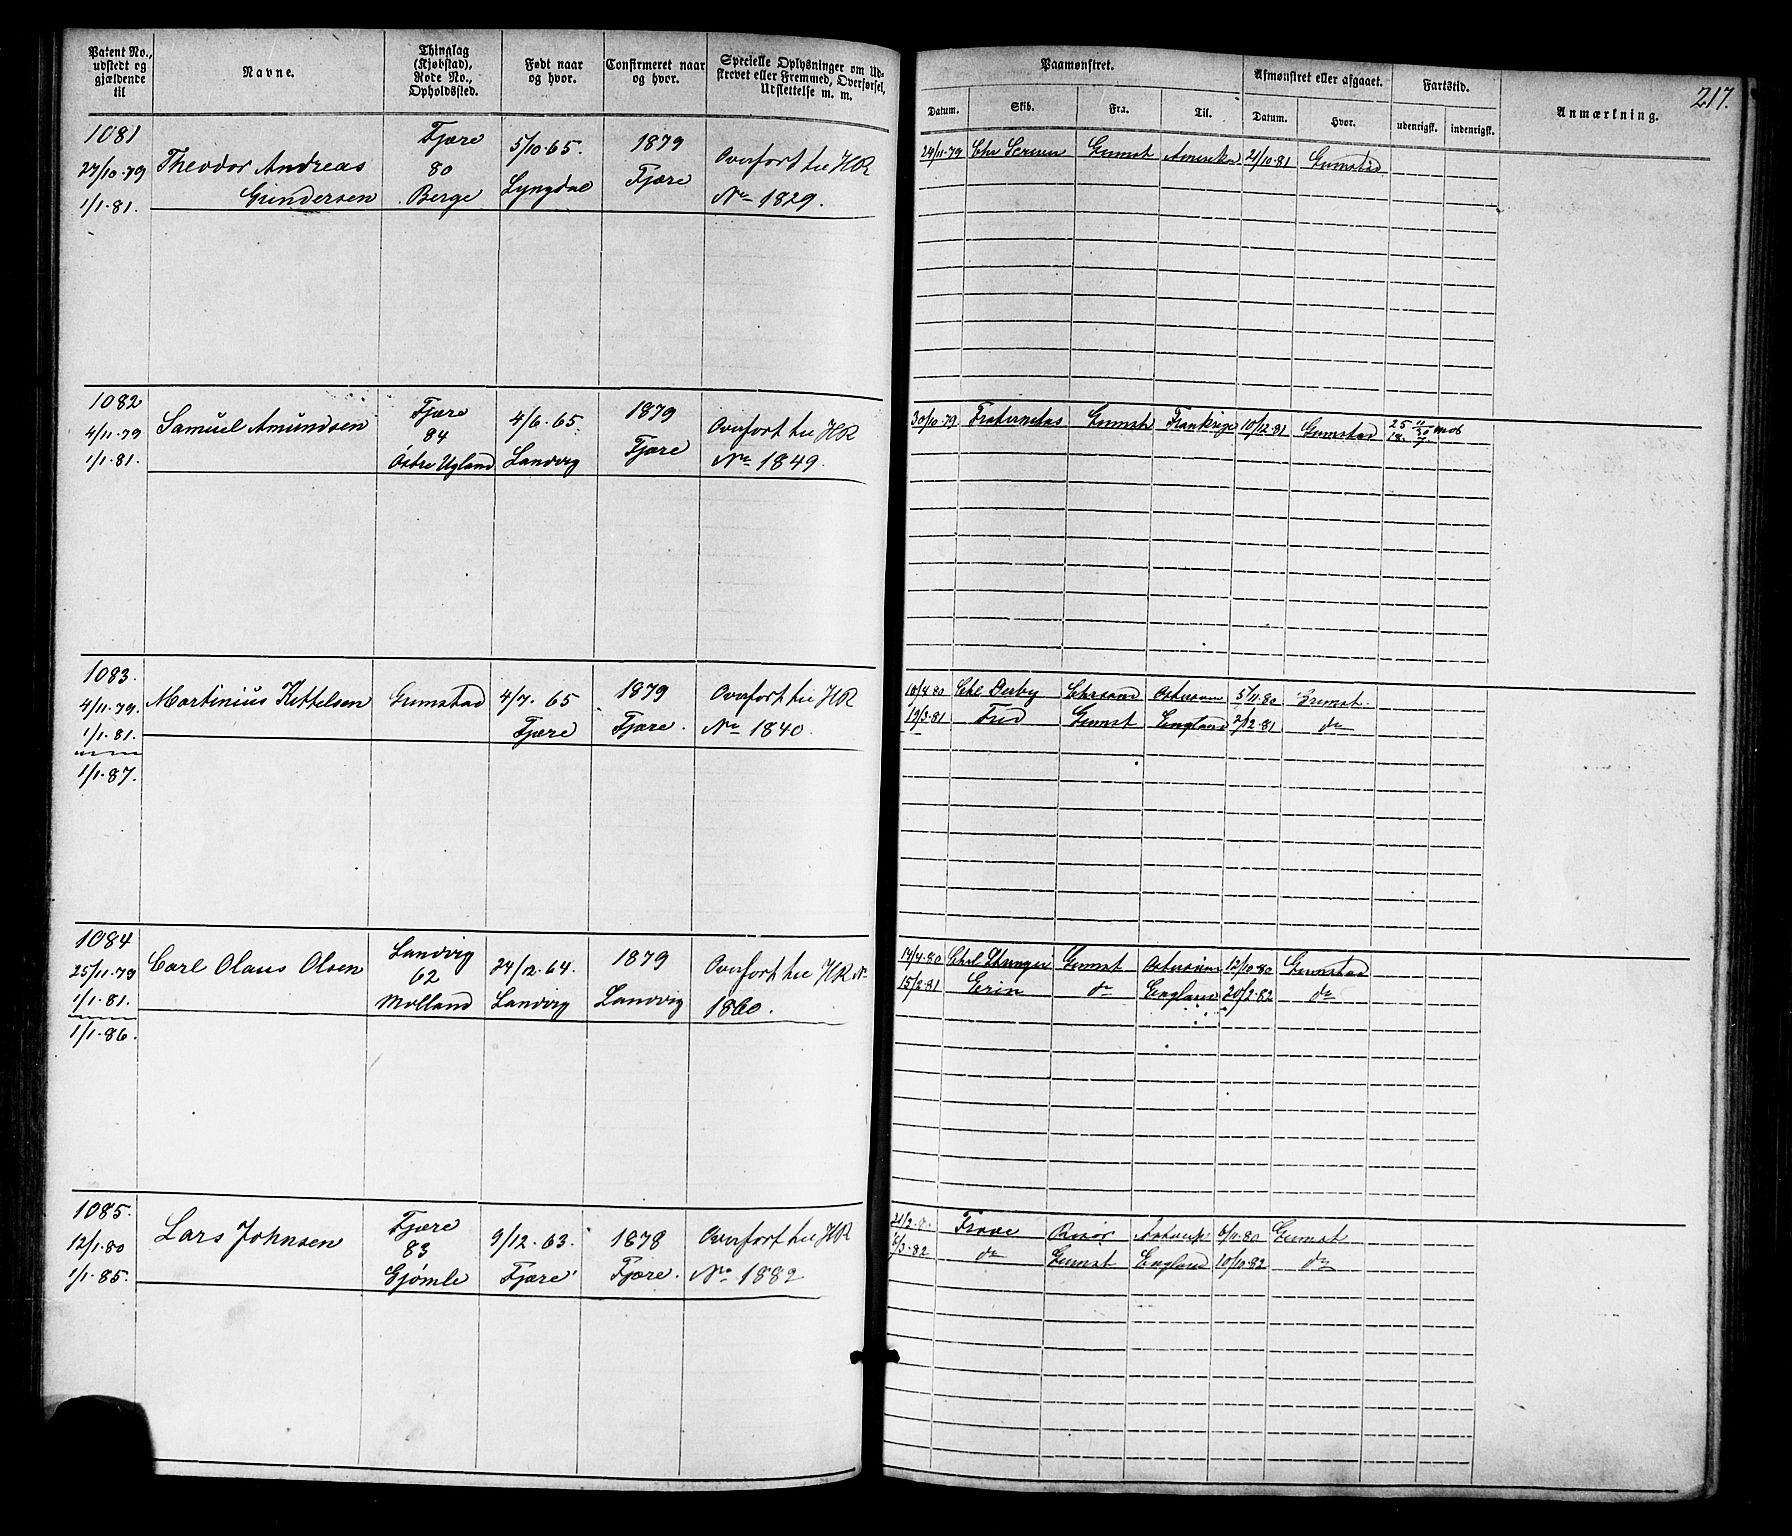 217.
Patent No., udstedt og gjældende til
Navne.
Thinglag (Kjøbstad), Rode No., Opholdssted.
Født naar og hvor.
Confirmeret naar og hvor.
Specielle Oplysninger om Udskrevet eller Fremmed, Overførsel, Udslettelse m. m.
Paamønstret.
Afmønstret eller afgaaet.
Fartstid.
Anmærkning.
Datum. Skib. Fra. Til. Datum. Hvor. udenrigsk. indenrigsk.
1081
27/10.79
1/1.81.
Theodor Andreas
Gundersen
Fjære
80
Berge
5/10.65.
Lyngdal
1879
Fjære
Overført til HR
No 1829.
24/11.79 Chr Grimst Amerika 21/10.81 Grimstad
1082
4/11.79
1/1.81.
Samuel Amundsen
Fjære
84
Østre Ugland
4/6.65
Landvig
1879
Fjære
Overført til HR
No 1849.
30/10.79 Fraternitas Grimst Frankrige 10/12.81 Grimstad
1083.
4/11.79.
1/1.81.
1/1.87.
Martinius Kittelsen
Grimstad
4/7.65
Fjære
1879
Fjære.
Overført til HR
No 1840.
10/4.80 Chrsand 5/11.80 Grimst
19/3.81 Grimst England 2/12.81 do
1084
25/11.79
1/1.81.
1/1.86.
Carl Olaus Olsen
Landvig
62
Molland
24/12.64.
Landvig
1879
Landvig
Overført til HR No
1860.
14/4.80 Grimst 12/10.80 Grimstad
15/2.81 Erin do England 20/2.82 do
1085.
12/1.80
1/1.85.
Lars Johnsen
Fjære
83
Gjømle
9/12.63.
Fjære
1878
Fjære.
Overført til HR
No 1882
Risør 6/11.80 Grimst
do Grimst England 10/10.82 do